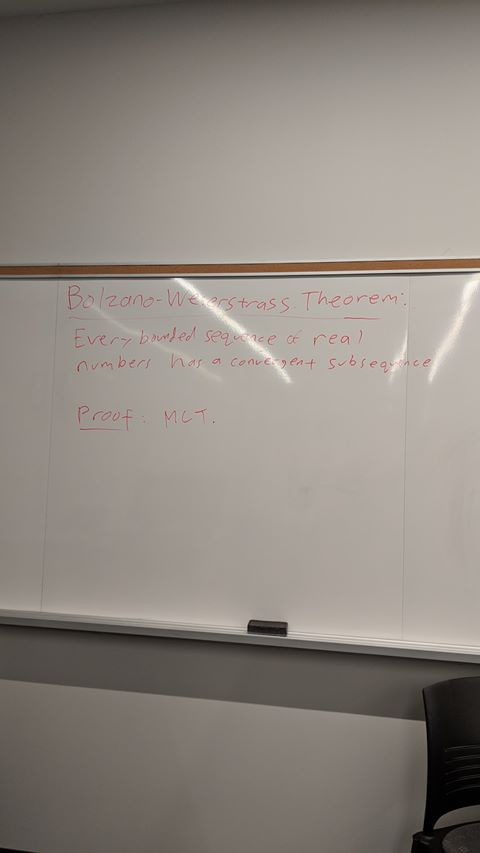 Bolzano-Weierstrass Theorem:
Every bounded sequence of real
numbers has a convergent subsequence
Proof: MCT.